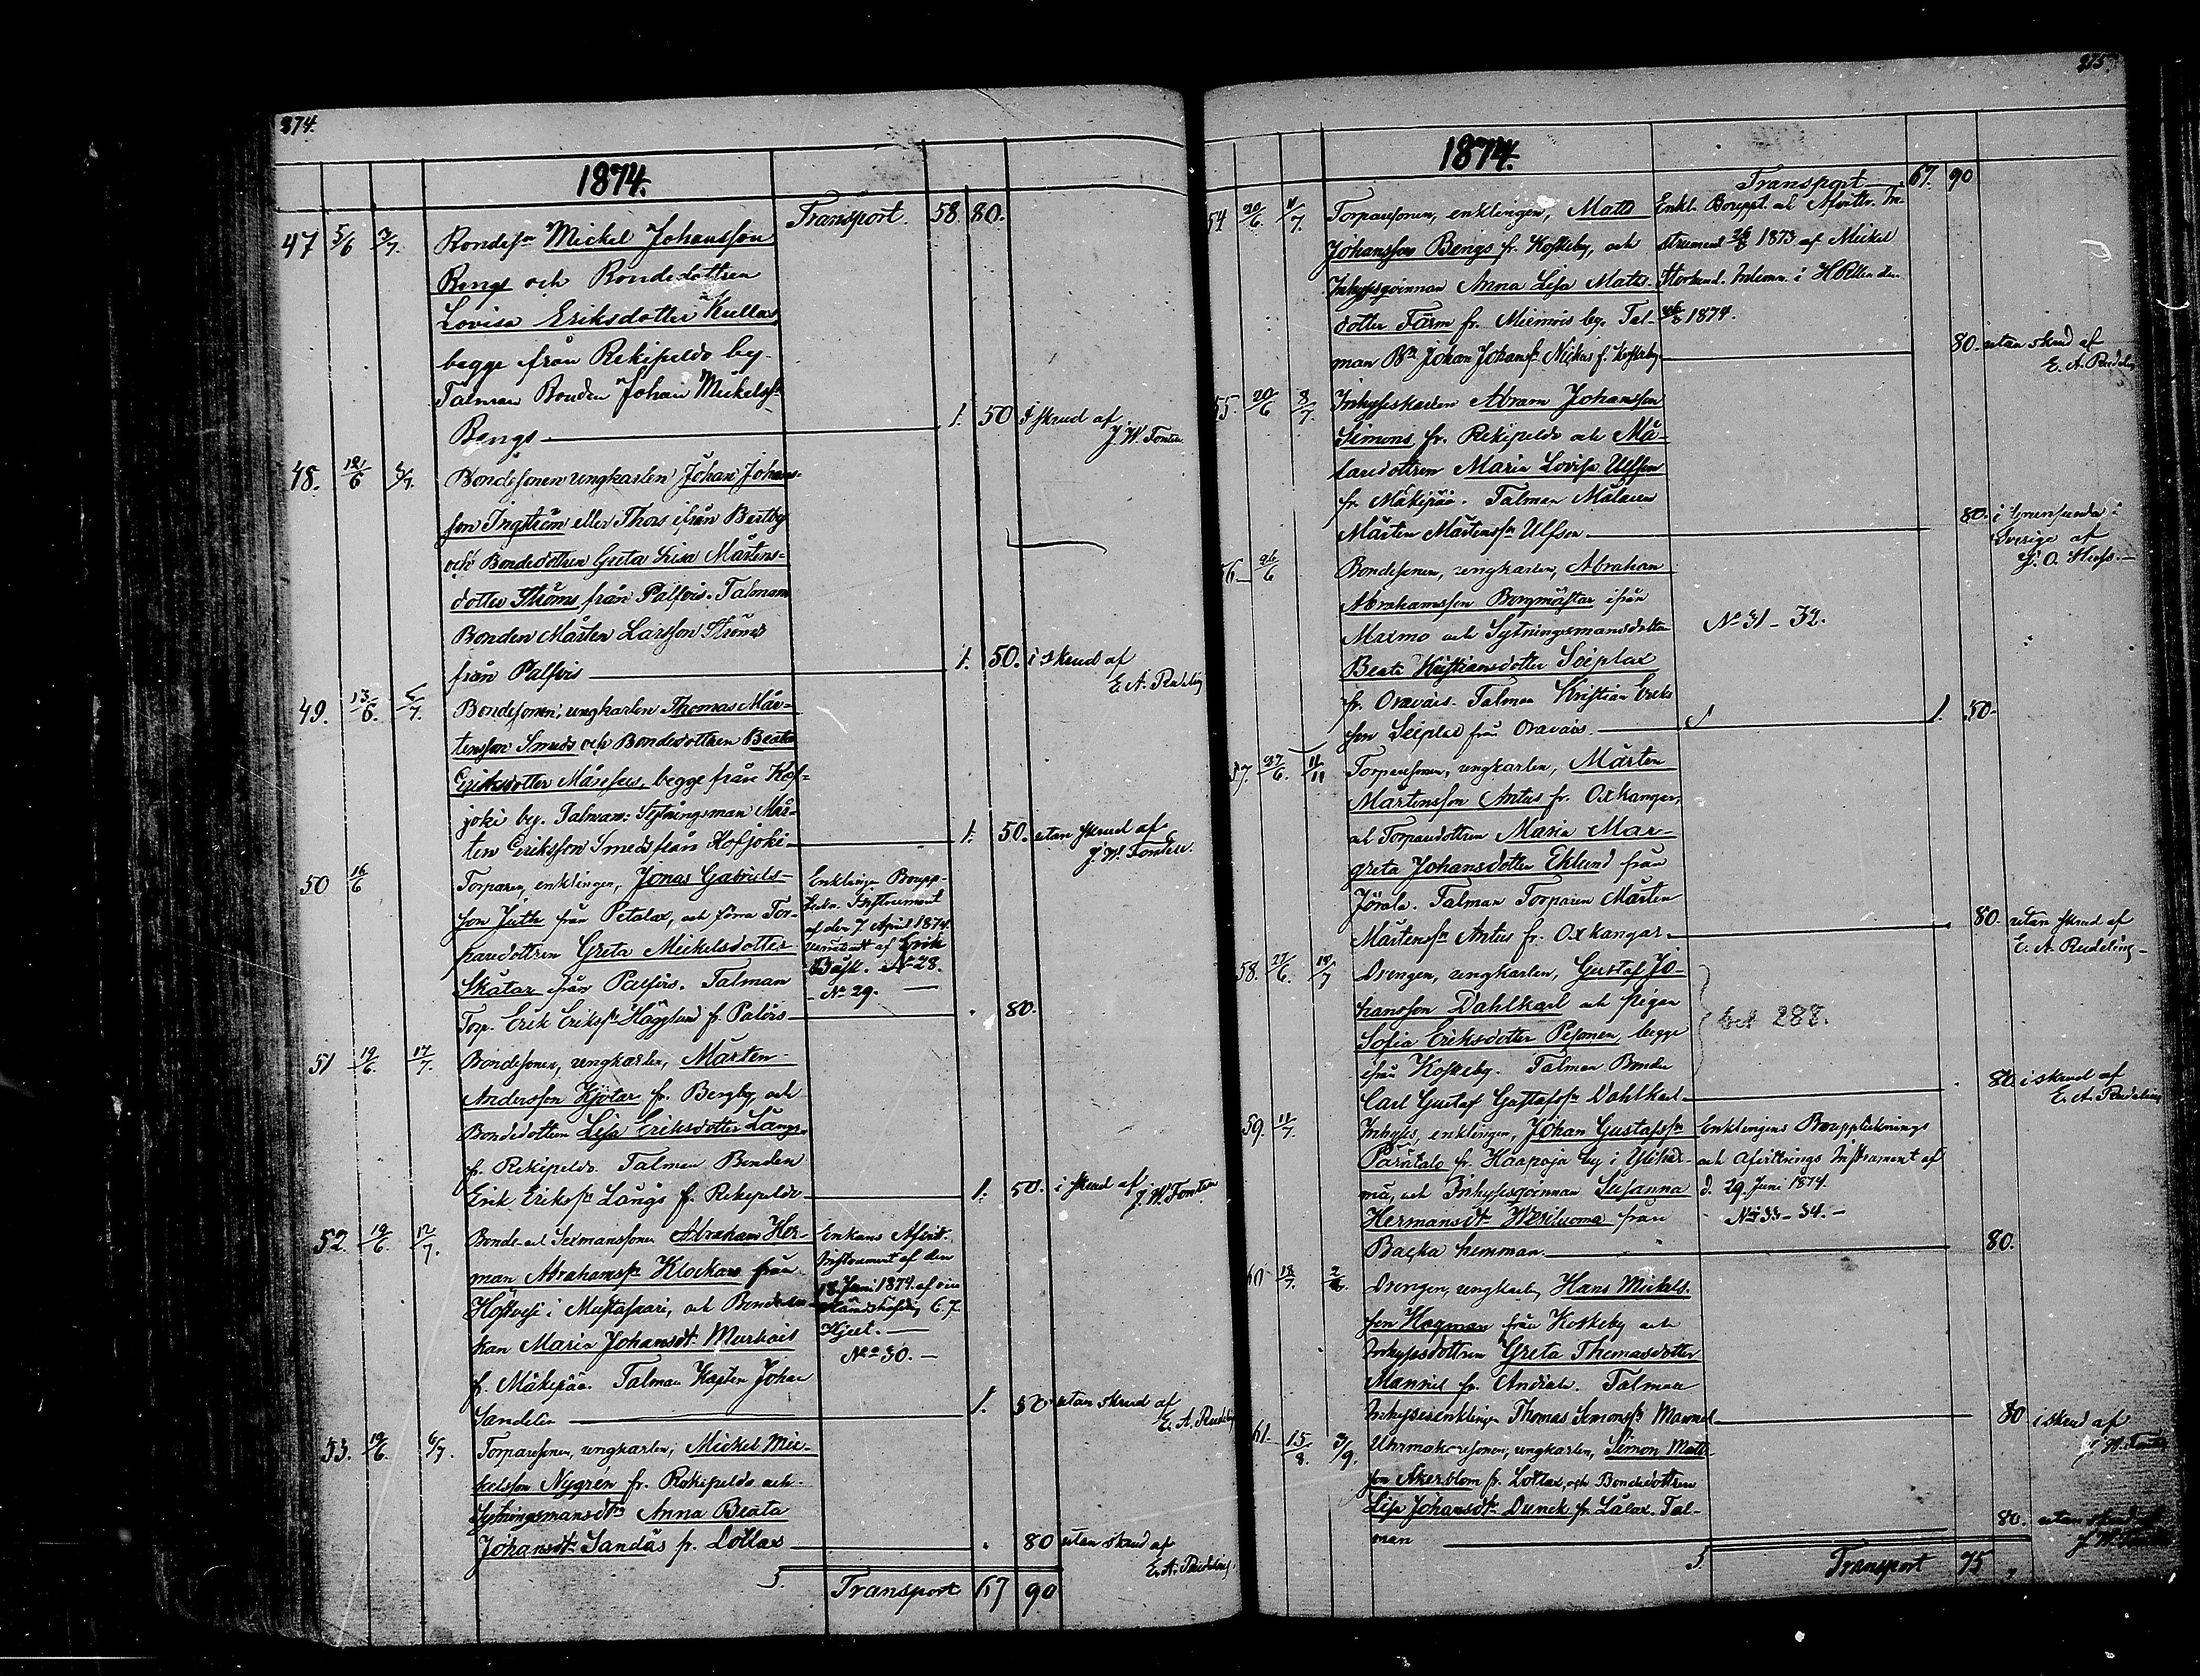 274.
1874.
Transport 58. 80.
47 5/6 3/7. Bondesn Mickel Johansson
Bengs och Bondedottren
Lovisa Eriksdotter Kullas
begge från Rekipeldo by.
Talman Bonden Johan Mickelssn
Bengs 1. 50 i skrud af
J. W. Fontell
48. 12/6 5/7. Bondesonen ungkarlen Johan Johans-
son Ingström eller Thors ifrån Bertby
och Bondedottren Greta Lisa Mårtens-
dotter Thöms från Palfvis. Talman
Bonden Mårten Larsson Thöms
från Palfvis 1. 50. i skrud af
E. A. Rudeling
49. 13/6. 5/7. Bondesonen, ungkarlen Thomas Mår-
tensson Smeds och Bondedottren Beata
Eriksdotter Mårtens, begge från Kof-
joki by. Talman: Sytningsman Mår-
ten Eriksson Smeds från Kofjoki 1. 50. utan skrud af
J. W. Fontell
50 16/6 Torparen, enklingen, Jonas Gabriels-
son Juth från Petalax, och förra Tor-
paredottren Greta Mickelsdotter
Skåtar från Palfvis. Talman
Torp. Erik Erikssn Hägglund f. Palvis 80.
Enklingen Boupp-
teckn. Instrument
af den 7 April 1874
af Erik
Bäck. No 28.
- No 29. -
51 19/6. 17/7. Bondesonen, ungkarlen, Mårten
Andersson Kjötar fr. Bergby, och
Bondedottren Lisa Eriksdotter Långs
fr. Rekipeldo. Talman Bonden
Erik Erikssn Långs f. Rekipeldo 1. 50. i skrud af
J. W. Fontell
52. 19/6. 12/7. Bonde- och Sexmanssonen Abraham Her-
man Abrahamssn Klockars från
i Mustasaari, och Bondeen-
kan Maria Johansdt. Markois
f. Mäkipää. Talman Kapten Johan
Sandelin 1. 50 utan skrud af
E. A. Rudeling
Enkans Afvit.
Instrument af den
18 Juni 1874. af vice
Häradshöfding C. J.
Kjert. -
No 30. -
53. 19/6. 6/7. Torparesonen, ungkarlen, Mickel Mic-
kelsson Nygrén fr. Rekipeldo och
Sytningsmansdtn Anna Beata
Johansdt. Sandås fr. Lottax 80 utan skrud af
E. A. Rudeling
5. Transport 67 90
275.
1874.
Transport 67. 90
54 20/6. /7 Torparesonen, enklingen, Matts
Johansson Bengs fr. Koskeby, och
Inhysesqvinnan Anna Lisa Matts-
dotter Färm fr. Miemois by. Tal-
man Bn Johan Johanssn Nickus f. Koskeby 80. utan skrud af
E. A. Rudeling
Enkl. Bouppt. och Afvittr. In-
strument 1873 af Mickel
Storlund. Inlemn. i HRtten den
1874.
55. 20/6 8/7. Inhyseskarlen Abram Johansson
Simons fr. Rekipeldo och Må-
laredottren Maria Lovisa Ulfson
fr. Mäkipää. Talman Målaren
Mårten Mårtenssn Ulfson 80. i i
Sverige af
J. O.
56. 26/6 Bondesonen, ungkarlen, Abraham
Abrahamsson Borgmästar ifrån
Maximo och Sytningsmansdottren
Beata Kristiansdotter Seiplax
fr. Oravais. Talman Kristian Eriks-
son Seiplax från Oravais. 1. 50.
No 31 - 32.
57. 27/6. 11/11 Torparesonen, ungkarlen, Mårten
Mårtensson Antus fr. Oxkangar,
och Torparedottren Maria Mar-
greta Johansdotter Eklund från
Jörala. Talman Torparen Mårten
Mårtenssn Antus fr. Oxkangar. 80. utan skrud af
E. A. Rudeling
58. 27/6. 19/7 Drengen, ungkarlen, Gustaf Jo-
hansson Dahlkarl och pigan
Sofia Eriksdotter Pesonen, begge
ifrån Koskeby. Talman Bonden
Carl Gustaf Gustafssn Dahlkarl 80. i skrud af
E. A. Rudeling
288.
59. 11/7. Inhyses, enklingen, Johan Gustafssn
Päntalo fr. Kaapoja by i Ylihär-
mä, och Inhysesqvinnan Susanna
Hermansdt. Wesiluoma från
Backa hemman. 80.
Enklingens Bouppteknings
och Afvittrings Instrument af
d. 29. Juni 1874.
No 33 - 34. -
60 18/7. Drengen, ungkarlen, Hans Mickels-
son Hagman från Koskeby och
Inhysesdottren Greta Thomasdotter
Mannil fr. Andiala. Talman
Inhysesenklingen Thomas Simonssn Mannil 80 i skrud af
J. W. Fontell
61 15/8. 3/9. Uhrmakaresonen, ungkarlen, Simon Matts-
son Åkerblom fr. Lottax, och Bondedottren
Lisa Johansdt. Dunck fr. Lålax. Tal-
man 80. utan skrud af
J. W. Fontell
5 Transport 75 "